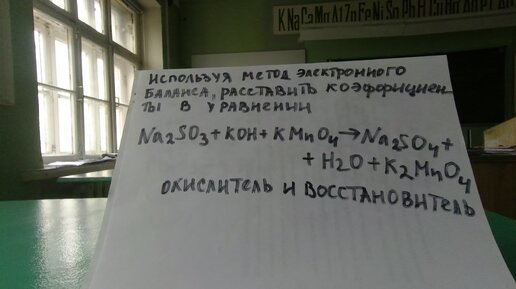 K Na Ca Mg Al Zn Fe Ni Sn Pb H Cu Hg
ИСПОЛЬЗУЯ МЕТОД ЭЛЕКТРОННОГО
БАЛАНСА, РАССТАВИТЬ КОЭФФИЦИЕН-
ТЫ В УРАВНЕНИИ
Na2SO3 + KOH + KMnO4 → Na2SO4 +
+ H2O + K2MnO4
ОКИСЛИТЕЛЬ И ВОССТАНОВИТЕЛЬ